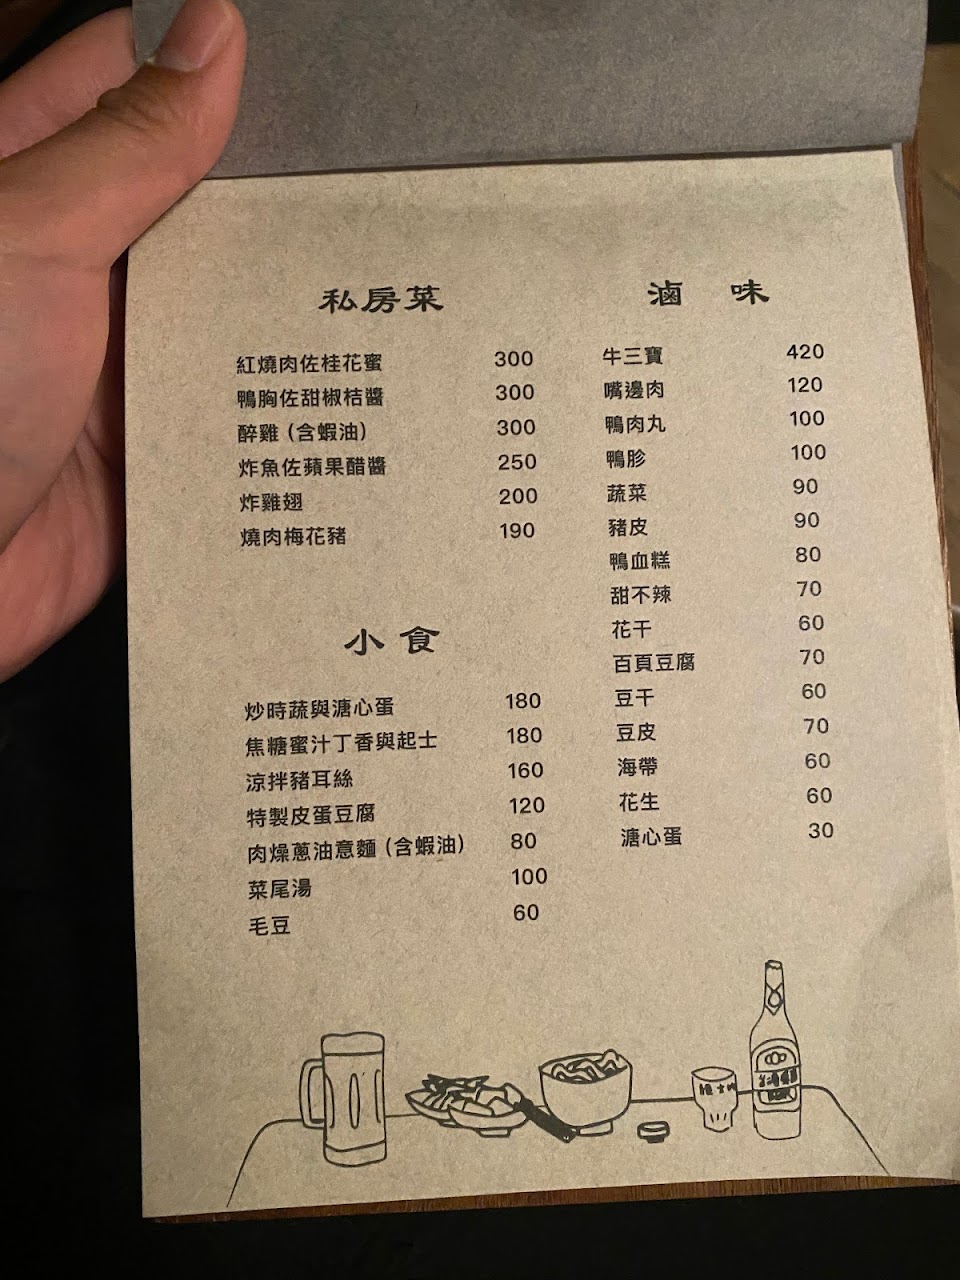 私房菜
紅燒肉佐桂花蜜 300
鴨胸佐甜椒桔醬 300
醉雞（含蝦油） 300
炸魚佐蘋果醋醬 250
炸雞翅 200
燒肉梅花豬 190
小食
炒時蔬與溏心蛋 180
焦糖蜜汁丁香與起士 180
涼拌豬耳絲 160
特製皮蛋豆腐 120
肉燥蔥油意麵（含蝦油） 80
菜尾湯 100
毛豆 60
滷味
牛三寶 420
嘴邊肉 120
鴨肉丸 100
鴨胗 100
蔬菜 90
豬皮 90
鴨血糕 80
甜不辣 70
花干 60
百頁豆腐 70
豆干 60
豆皮 70
海帶 60
花生 60
溏心蛋 30